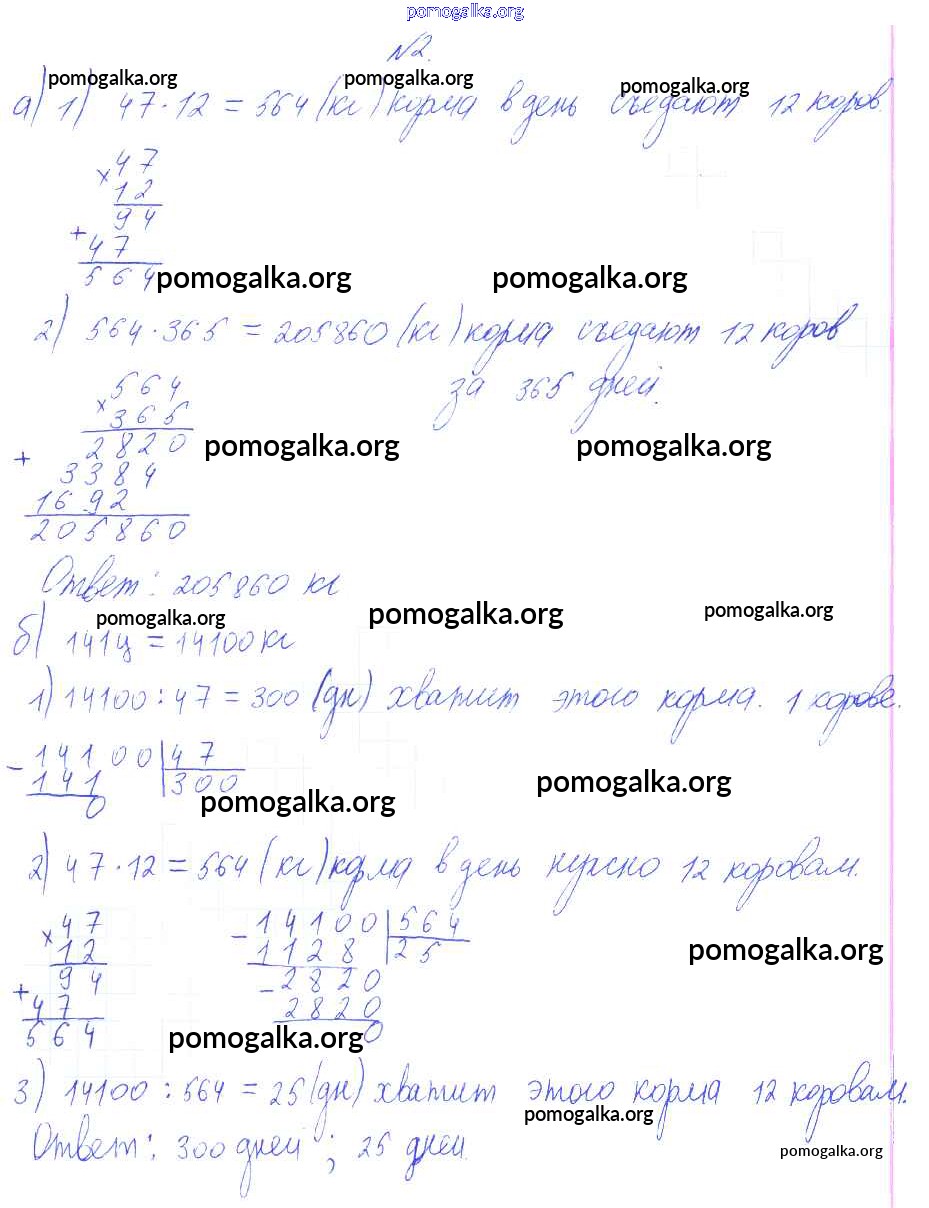 pomogalka.org
№2.
pomogalka.org pomogalka.org pomogalka.org
а) 1) 47·12 = 564 (кг) корма в день съедают 12 коров.
× 47
12
94
+ 47
564
pomogalka.org pomogalka.org
2) 564·365 = 205860 (кг) корма съедают 12 коров
за 365 дней.
× 564
365
pomogalka.org pomogalka.org
2820
+ 3384
1692
205860
Ответ: 205860 кг
pomogalka.org pomogalka.org pomogalka.org
б) 141ц = 14100 кг
1) 14100 : 47 = 300 (дн) хватит этого корма. 1 корове.
- 14100 | 47
141 | 300
0
pomogalka.org pomogalka.org
2) 47·12 = 564 (кг) корма в день нужно 12 коровам.
× 47 - 14100 | 564
12 1128 | 25
pomogalka.org
94 - 2820
+ 47 2820
564 0
pomogalka.org
3) 14100 : 564 = 25 (дн) хватит этого корма 12 коровам.
pomogalka.org
Ответ: 300 дней ; 25 дней.
pomogalka.org